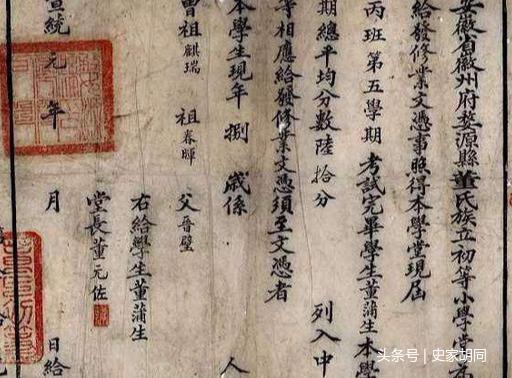 安徽省徽州府婺源縣董氏族立初等小學堂爲
給發修業文憑事照得本學堂現屆
丙班第五學期考試完畢學生董蒲生本學
期總平均分數陸拾分
列入中
等相應給發修業文憑須至文憑者
本學生現年捌歲係
人
曾祖麒瑞 祖春暉 父晉璧
右給學生董蒲生
堂長董元佐
宣統元年 月 日給
头条号 | 史家胡同